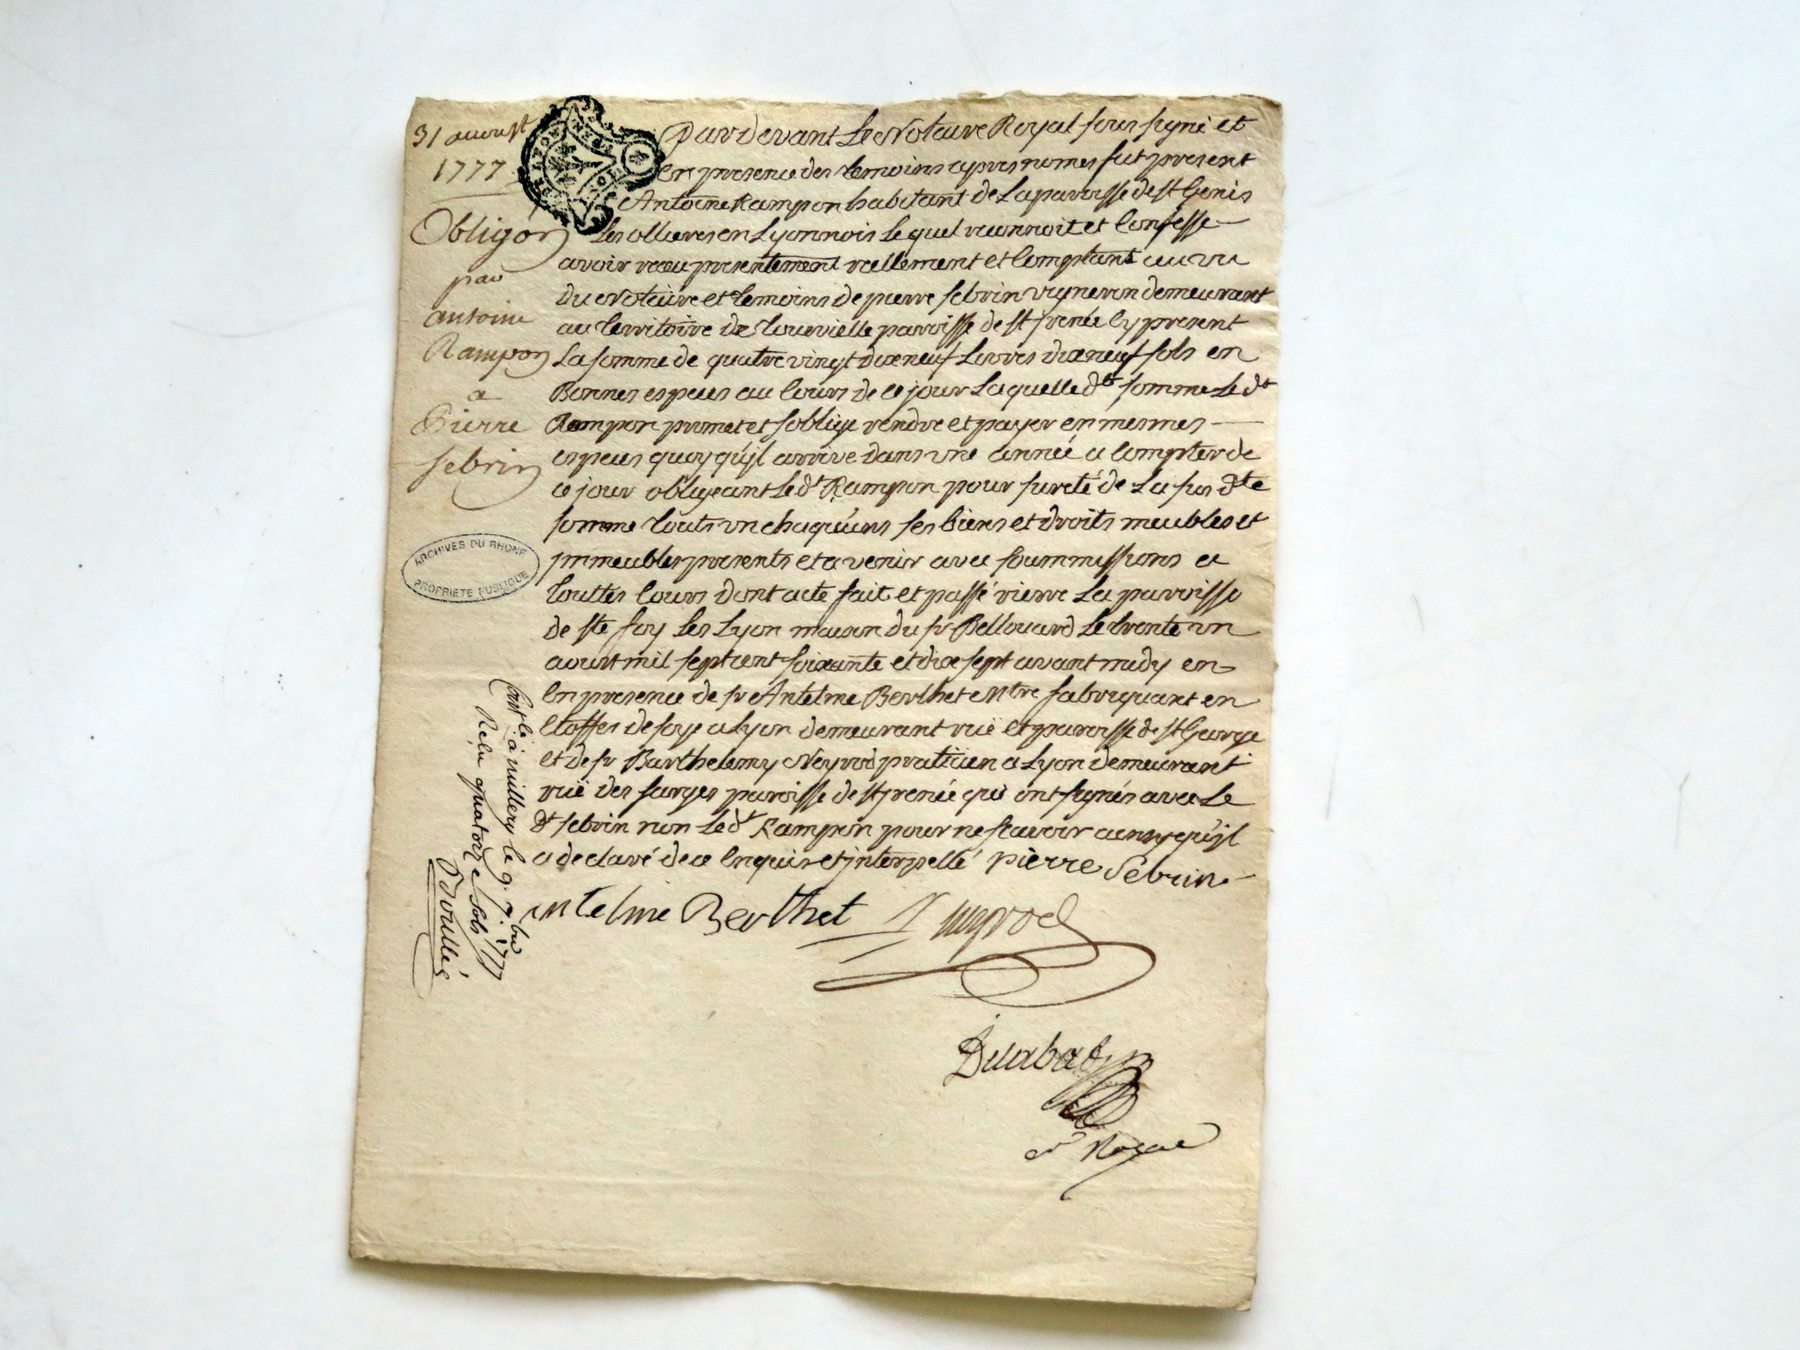 31 aoust
1777
Obligon
par
antoine
Rampon
a
Pierre
sebrin
ARCHIVES DU RHONE
PROPRIETE PUBLIQUE
Pardevant Le Notaire Royal soussigné et
en presence des temoins cy apres nomes fut present
Antoine Rampon habitant de La paroisse de st Genis
Les ollieres en Lyonnois Lequel reconnoit et confesse
avoir receu presentement reellement et comptant au vu
Du Notaire et temoins de pierre sebrin vigneron demeurant
au territoire de paroisse de st jrenée cy present
La somme de quatre vingt dixneuf Livres dixneuf sols en
Bonnes especes au cours de ce jour Laquelle dte somme Le dt
Rampon promet et s'oblige rendre et payer en mesmes
especes quoy qu'jl arrive dans une année a compter de
ce jour obligeant Le dt Rampon pour sureté de La sus dte
somme touts un chaqu'uns ses biens et droits meubles et
jmmeubles presents et a venir avec soummissions a
touttes cours Dont acte fait et passé riere La parroisse
de ste foy Les Lyon maison du sr Bellouard Le trente un
aoust mil sept cent soixante et dix sept avant midy en
En presence de sr Antelme Berthet mtre fabriquant en
Etoffes de soye a Lyon demeurant ruë et paroisse de st George
et de sr Barthelemy Neyrod praticien a Lyon demeurant
ruë des farges paroisse de st jrenée qui ont signés avec Le
dt sebrin non Le dt Rampon pour ne scavoir ainsy qu'jl
a declaré de ce Enquis et jnterpellé pierre Sebrin
antelme Berthet Neyrod
Nore Royal
Contlé à millery le 9. 7.bre 1777
Reçu quatorze sols